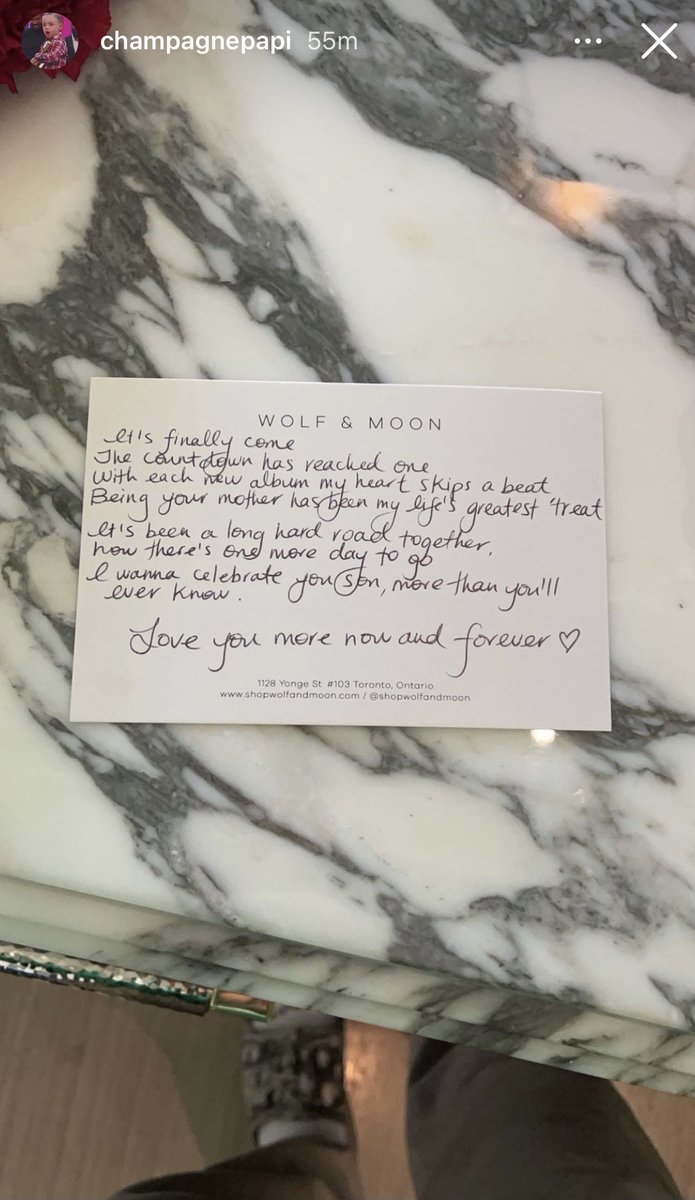 champagnepapi 55m
WOLF & MOON
It's finally come
The countdown has reached one
With each new album my heart skips a beat
Being your mother has been my life's greatest treat
It's been a long hard road together,
now there's one more day to go
I wanna celebrate you son, more than you'll
ever know.
Love you more now and forever ♡
1128 Yonge St. #103 Toronto, Ontario
www.shopwolfandmoon.com / @shopwolfandmoon